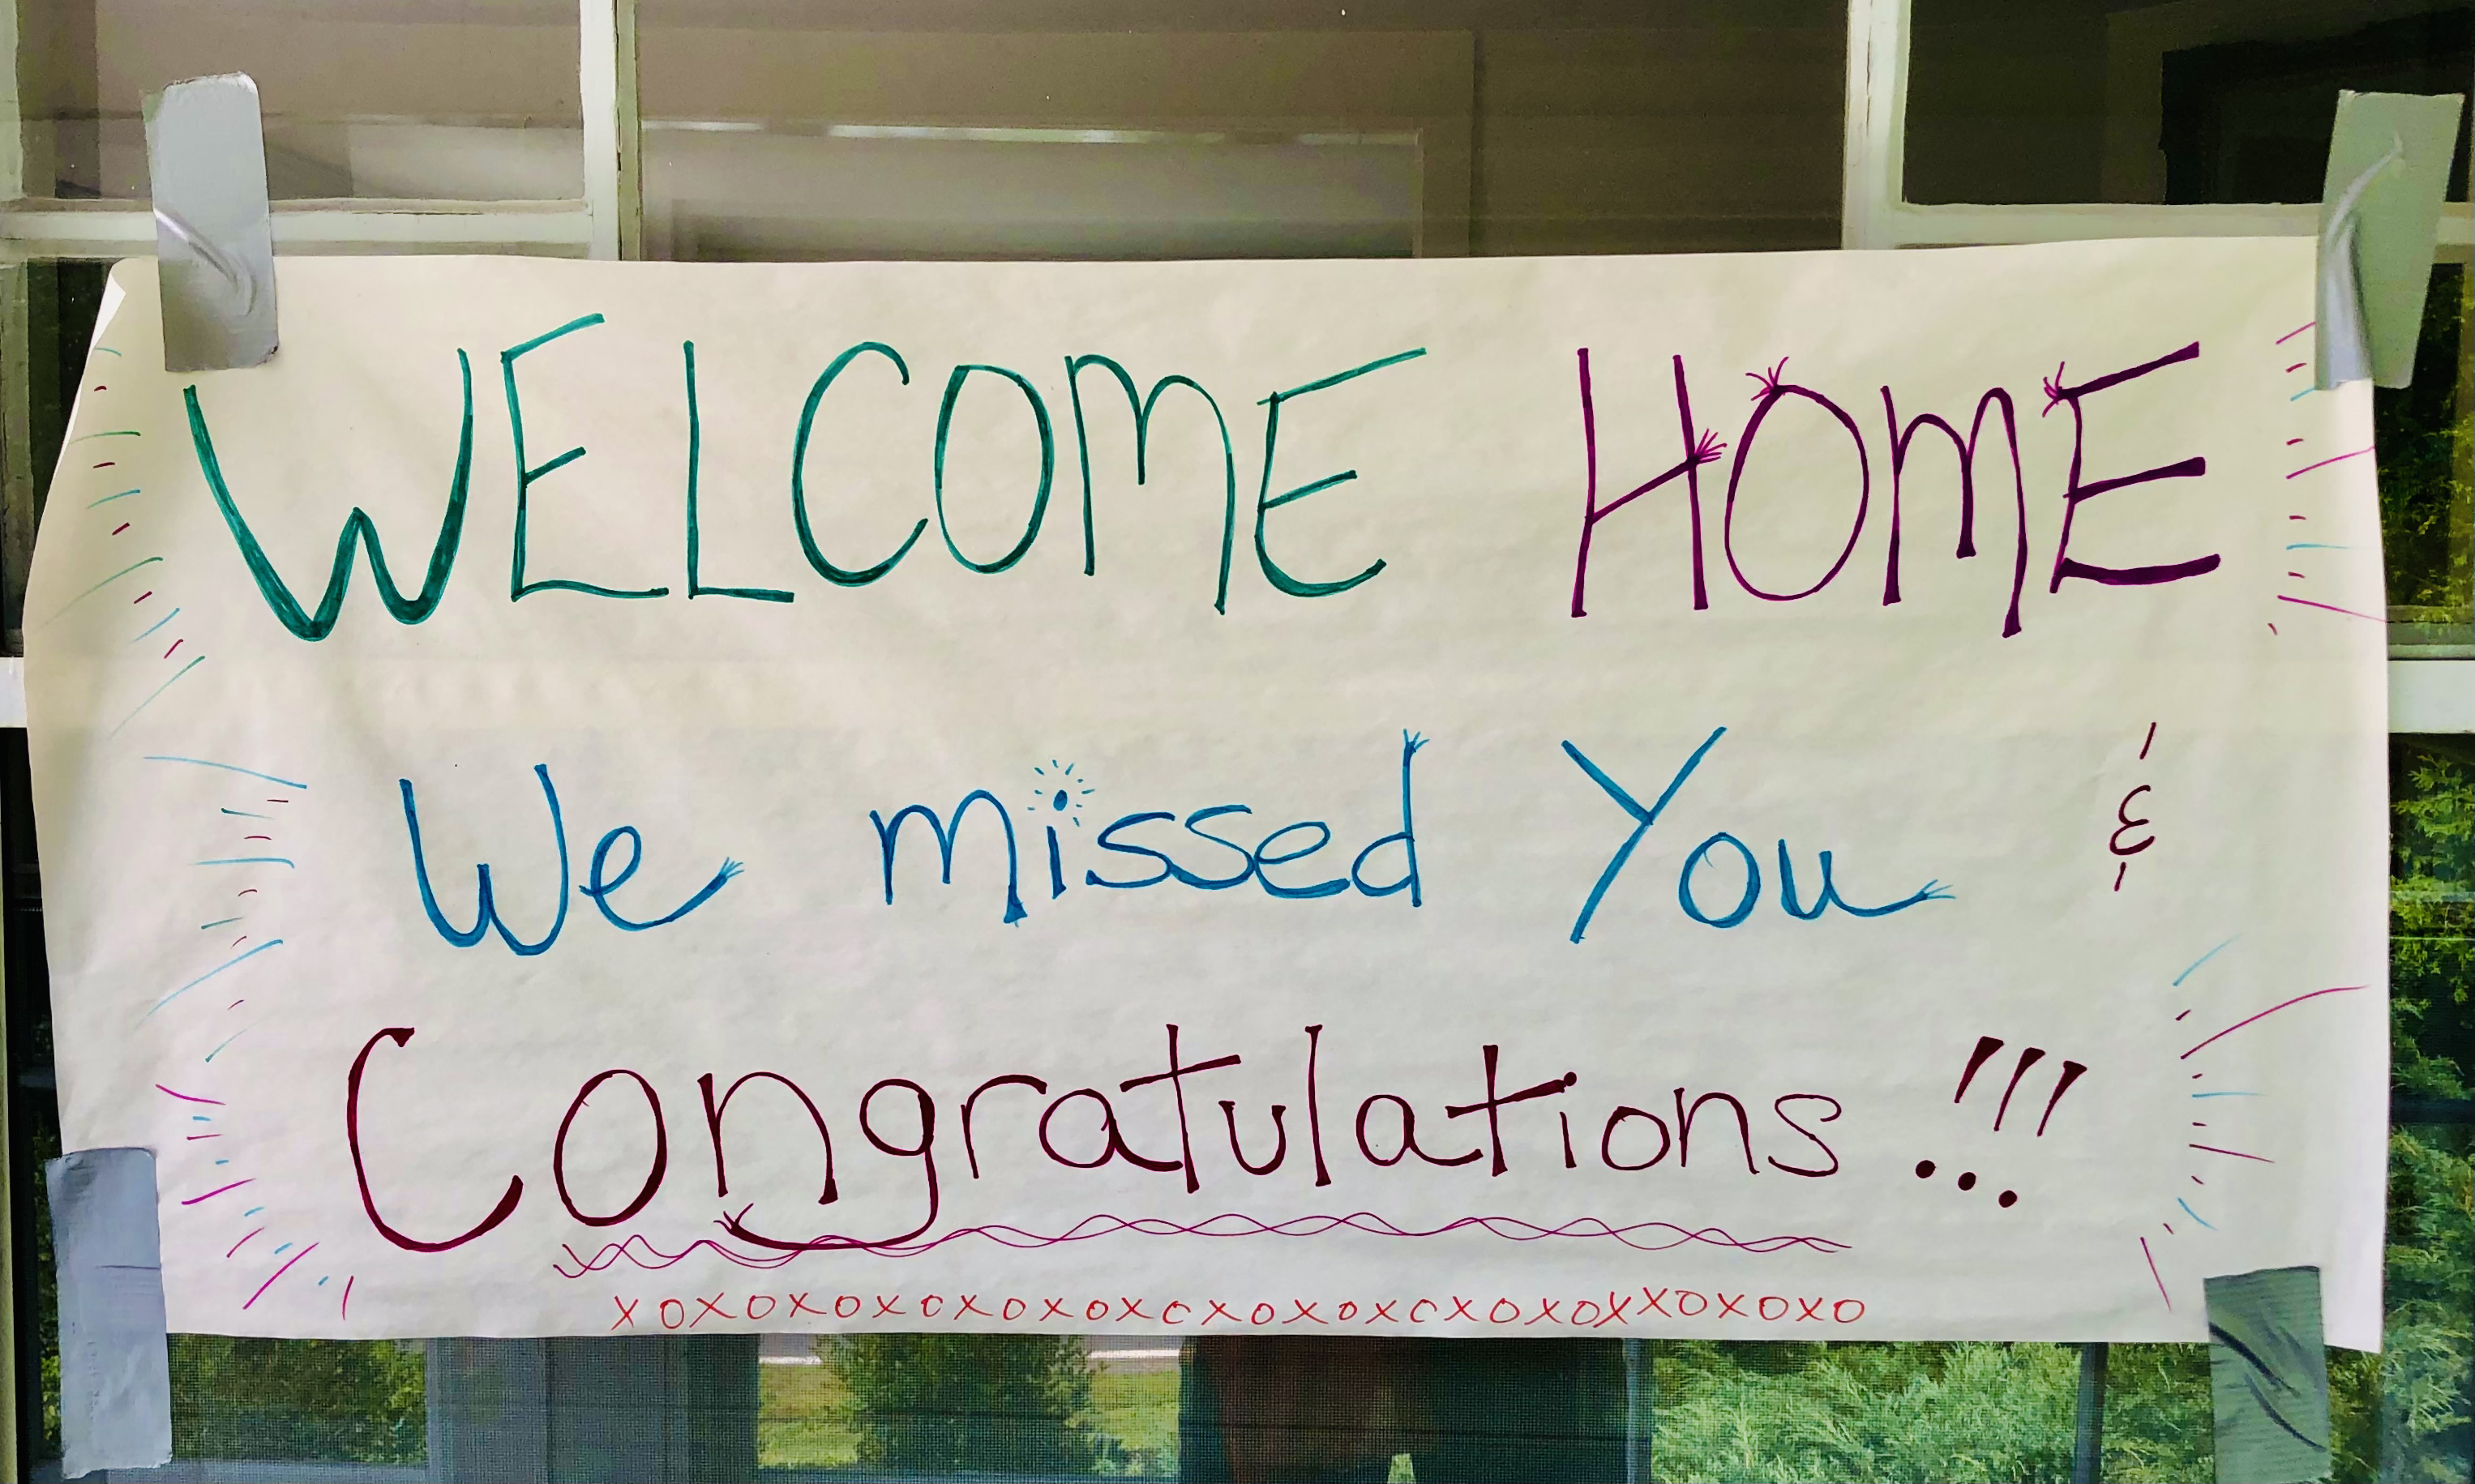 WELCOME HOME
We missed You &
Congratulations !!!
XOXOXOXOXOXOXOXOXOXOXOXXOXOXO